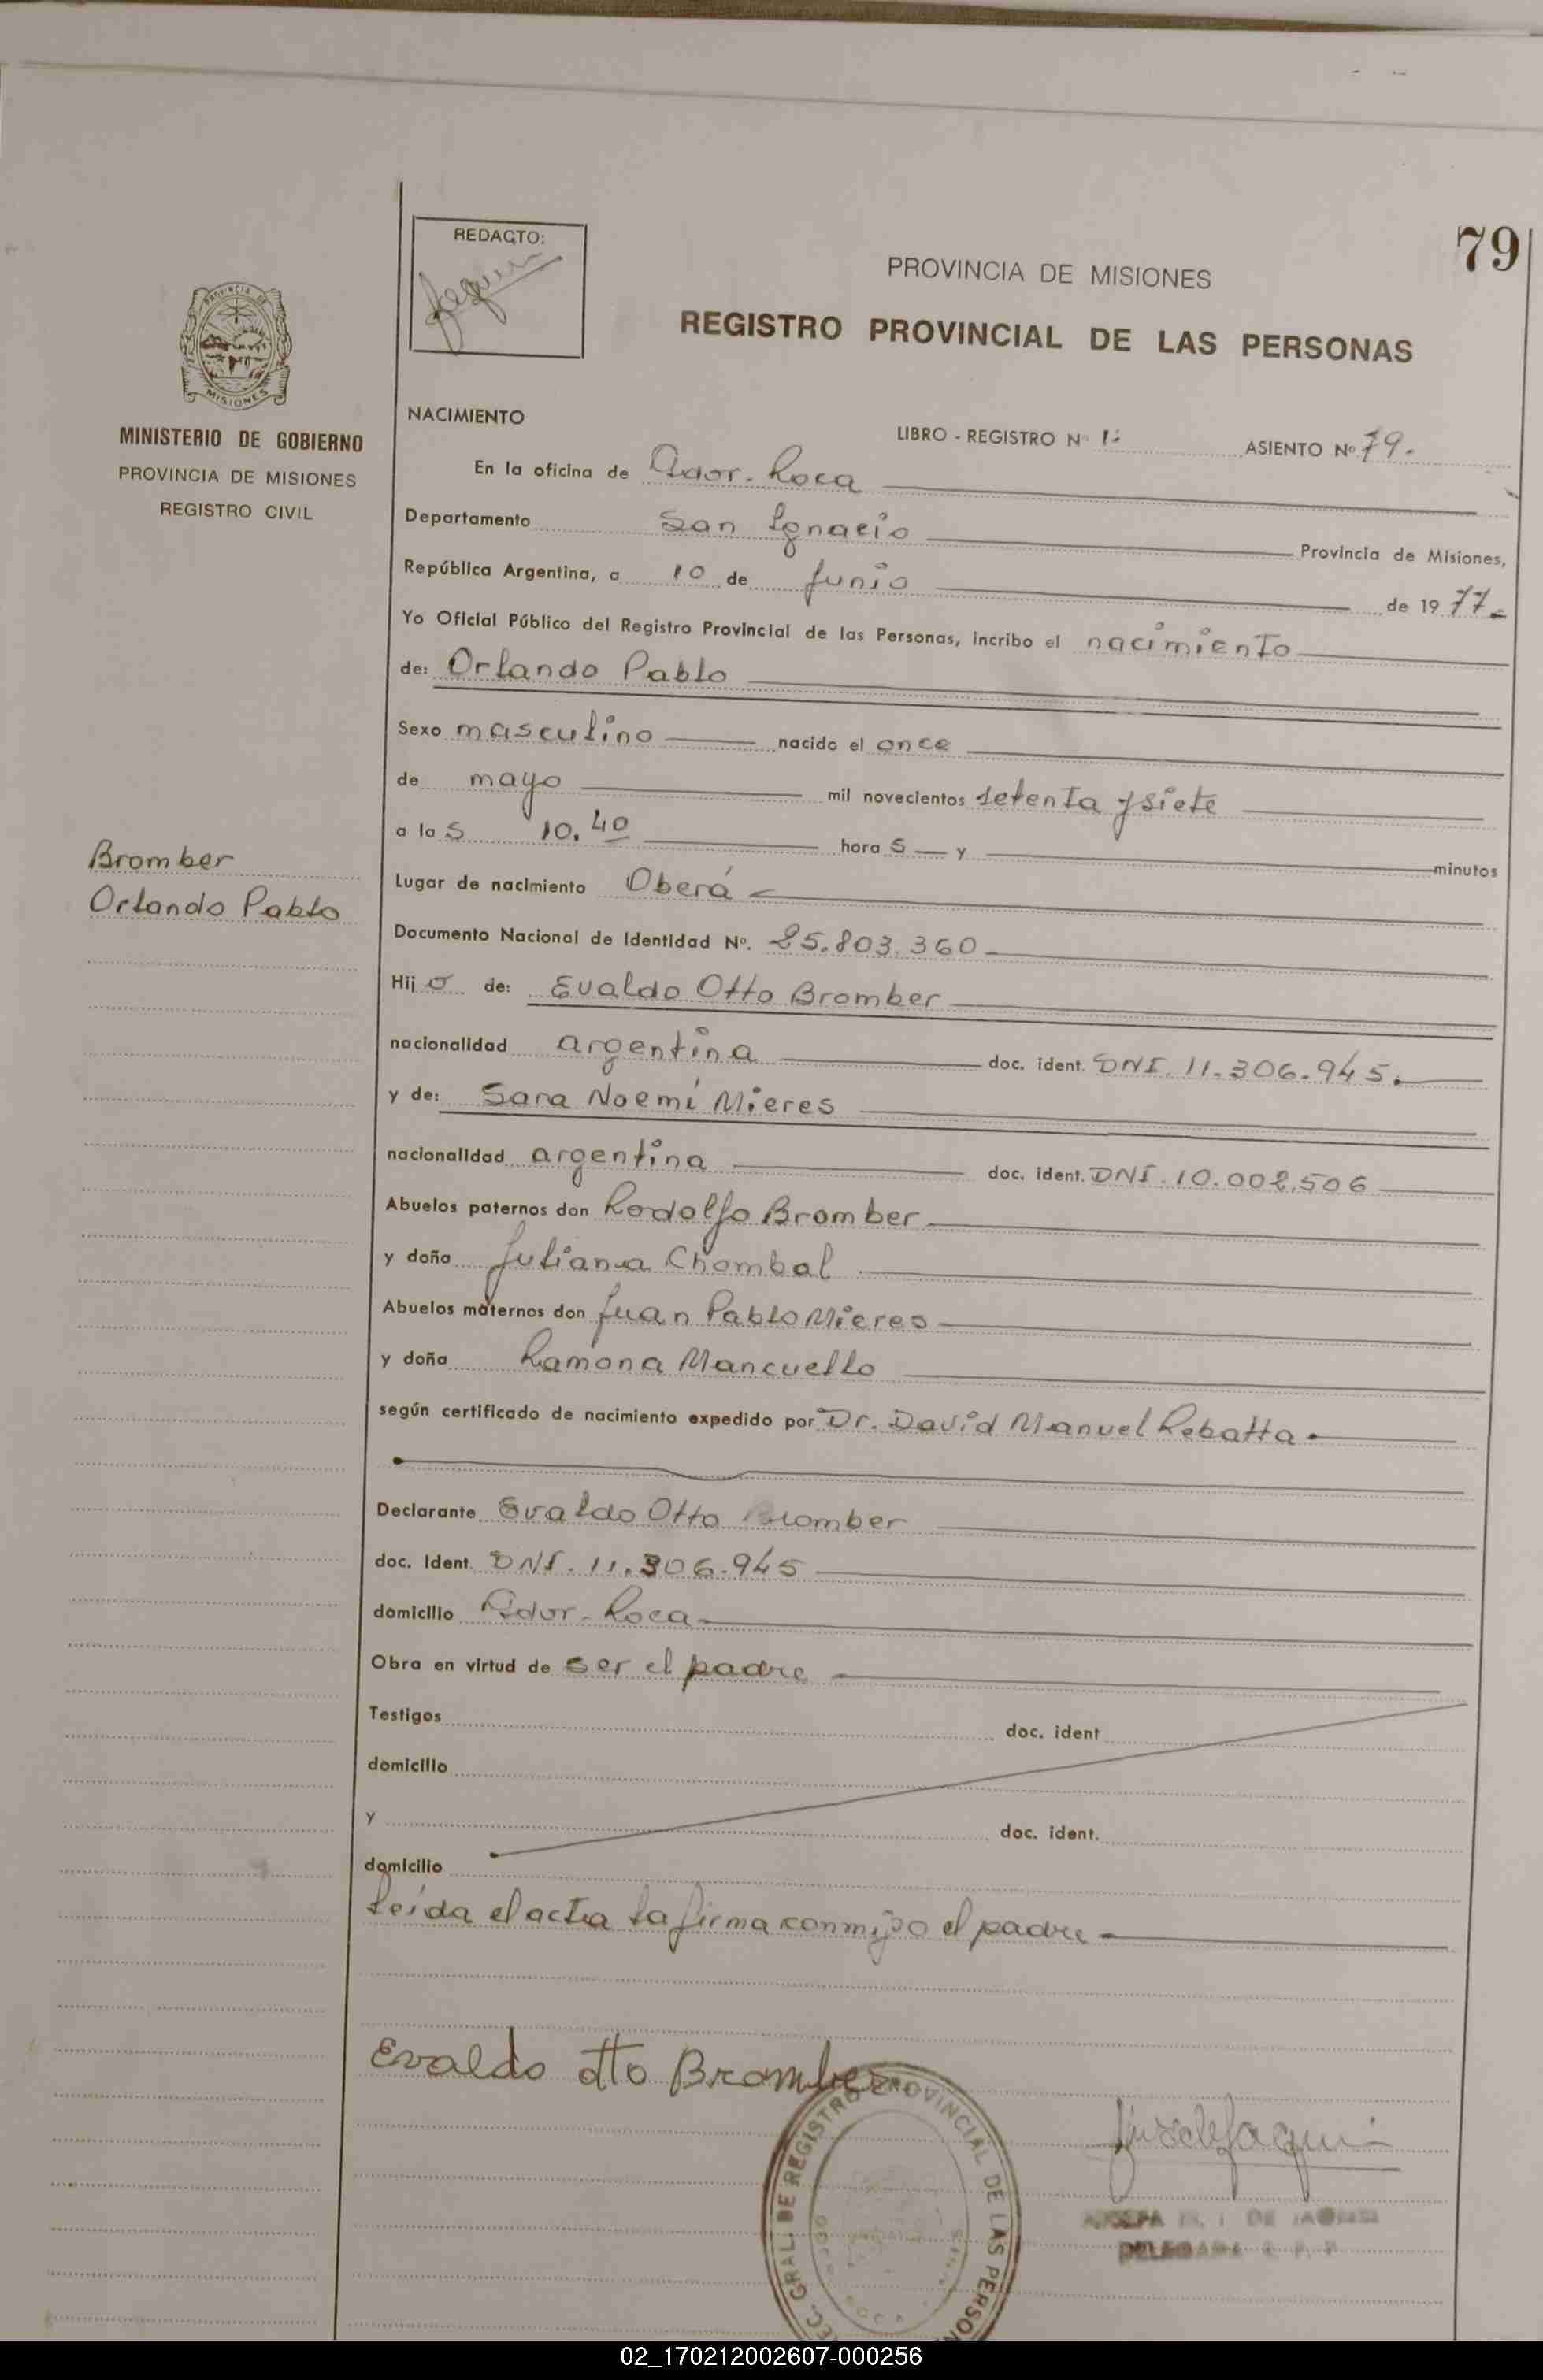 79
REDACTO:
PROVINCIA DE MISIONES
REGISTRO PROVINCIAL DE LAS PERSONAS
PROVINCIA DE
MISIONES
MINISTERIO DE GOBIERNO
PROVINCIA DE MISIONES
REGISTRO CIVIL
Bromber
Orlando Pablo
NACIMIENTO
LIBRO - REGISTRO Nº 1: ASIENTO Nº 79.
En la oficina de Gdor. Roca
Departamento San Ignacio Provincia de Misiones,
República Argentina, a 10 de Junio de 1977
Yo Oficial Público del Registro Provincial de las Personas, incribo el nacimiento
de: Orlando Pablo
Sexo masculino nacido el once
de mayo mil novecientos setenta y siete
a las 10,40 horas y minutos
Lugar de nacimiento Oberá
Documento Nacional de Identidad Nº. 25.803.360
Hijo de: Evaldo Otto Bromber
nacionalidad argentina doc. ident. DNI. 11.306.945.
y de: Sara Noemí Mieres
nacionalidad argentina doc. ident. DNI. 10.002.506
Abuelos paternos don Rodolfo Bromber
y doña Juliana Chombal
Abuelos maternos don Juan Pablo Mieres
y doña Ramona Mancuello
según certificado de nacimiento expedido por Dr. David Manuel Rebatta.
Declarante Evaldo Otto Bromber
doc. Ident. DNI. 11.306.945
domicilio Gdor. Roca
Obra en virtud de ser el padre
Testigos doc. ident
domicilio
y doc. ident.
domicilio
Leída el acta la firma conmigo el padre
Evaldo Otto Bromber
GRAL. DE REGISTRO PROVINCIAL DE LAS PERSON
DE
DELEGADA
02_170212002607-000256